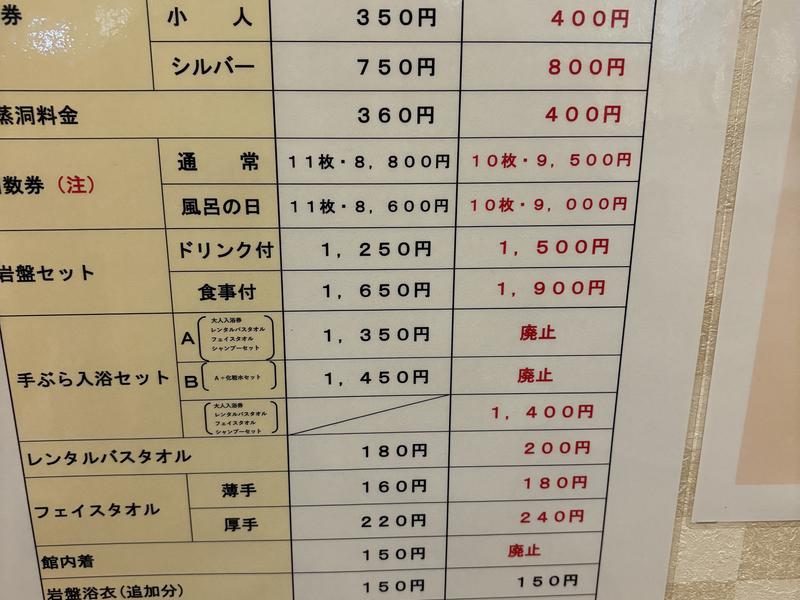 券 小　人 350円 400円
シルバー 750円 800円
蒸洞料金 360円 400円
数券（注） 通　常 11枚・8，800円 10枚・9，500円
風呂の日 11枚・8，600円 10枚・9，000円
岩盤セット ドリンク付 1，250円 1，500円
食事付 1，650円 1，900円
手ぶら入浴セット A 大人入浴券 1，350円 廃止
レンタルバスタオル
フェイスタオル
シャンプーセット
B A＋化粧水セット 1，450円 廃止
大人入浴券 1，400円
レンタルバスタオル
フェイスタオル
シャンプーセット
レンタルバスタオル 180円 200円
フェイスタオル 薄手 160円 180円
厚手 220円 240円
館内着 150円 廃止
岩盤浴衣（追加分） 150円 150円